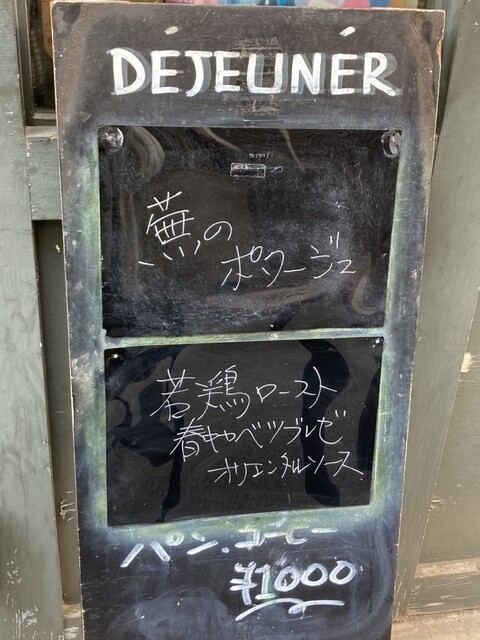 DÉJEUNÉR
蕪の
ポタージュ
若鶏ロースト
春キャベツブレゼ
オリエンタルソース
パン.コーヒー
¥1000